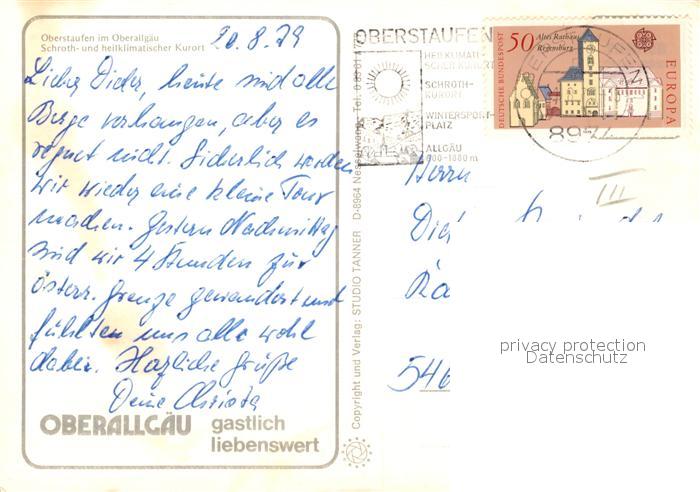 Oberstaufen im Oberallgäu
Schroth- und heilklimatischer Kurort
20.8.79
Lieber Dieter, heute sind alle
Berge verhangen, aber es
regnet nicht. Sicherlich werden
wir wieder eine kleine Tour
machen. Gestern Nachmittag
sind wir 4 Stunden zur
österr. Grenze gewandert und
fühlten uns alle wohl
dabei. Herzliche Grüße
Deine
OBERALLGÄU gastlich
liebenswert
Copyright und Verlag: STUDIO TANNER D-8964 Nesselwang Tel.
OBERSTAUFEN
HEILKLIMATI-
SCHER KURORT
SCHROTH-
KURORT
WINTERSPORT-
PLATZ
ALLGÄU
800-1800 m
DEUTSCHE BUNDESPOST
50 Altes Rathaus
Regensburg
EUROPA
III
Herrn
546
privacy protection
Datenschutz